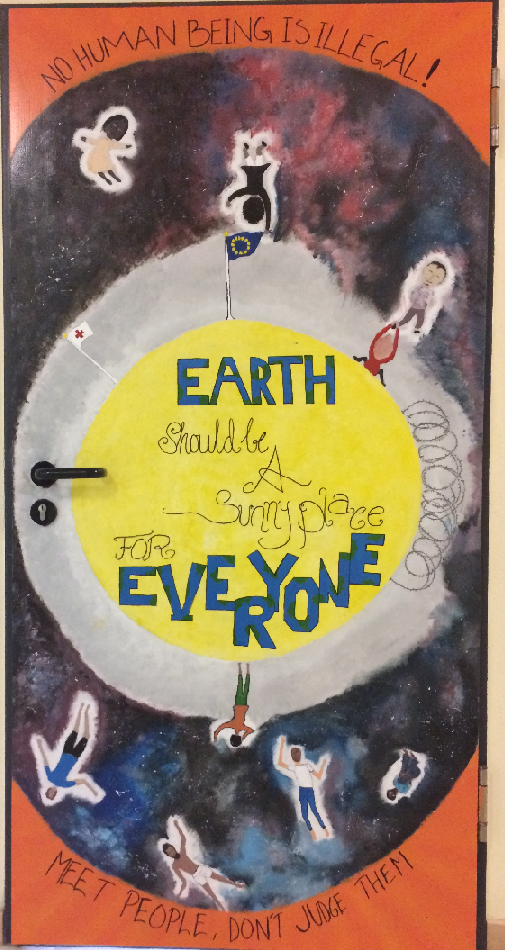 NO HUMAN BEING IS ILLEGAL!
EARTH
Should be
A
sunny place
FOR
EVERYONE
MEET PEOPLE, DON'T JUDGE THEM